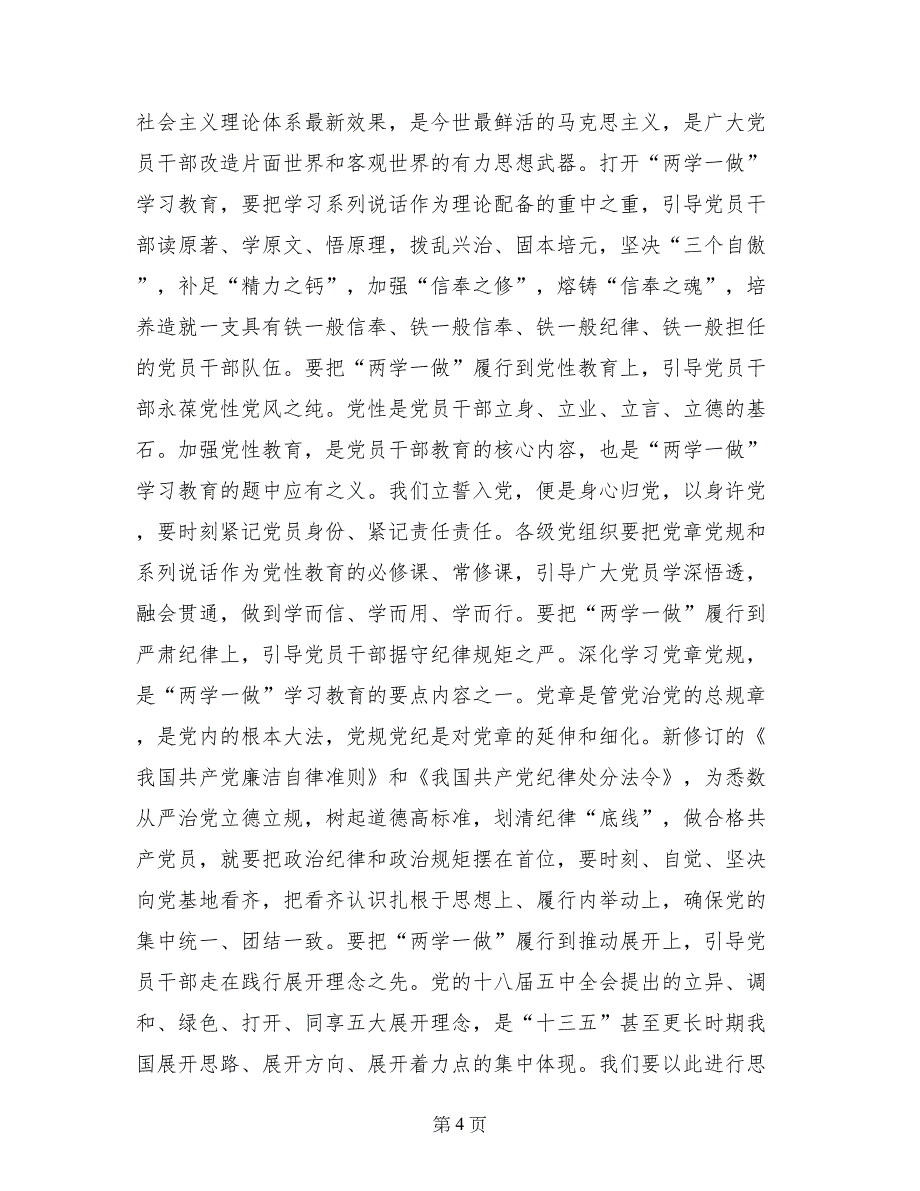 社会主义理论体系最新效果，是今世最鲜活的马克思主义，是广大党
员干部改造片面世界和客观世界的有力思想武器。打开“两学一做”
学习教育，要把学习系列说话作为理论配备的重中之重，引导党员干
部读原著、学原文、悟原理，拨乱兴治、固本培元，坚决“三个自傲
”，补足“精力之钙”，加强“信奉之修”，熔铸“信奉之魂”，培
养造就一支具有铁一般信奉、铁一般信奉、铁一般纪律、铁一般担任
的党员干部队伍。要把“两学一做”履行到党性教育上，引导党员干
部永葆党性党风之纯。党性是党员干部立身、立业、立言、立德的基
石。加强党性教育，是党员干部教育的核心内容，也是“两学一做”
学习教育的题中应有之义。我们立誓入党，便是身心归党，以身许党
，要时刻紧记党员身份、紧记责任责任。各级党组织要把党章党规和
系列说话作为党性教育的必修课、常修课，引导广大党员学深悟透，
融会贯通，做到学而信、学而用、学而行。要把“两学一做”履行到
严肃纪律上，引导党员干部据守纪律规矩之严。深化学习党章党规，
是“两学一做”学习教育的要点内容之一。党章是管党治党的总规章
，是党内的根本大法，党规党纪是对党章的延伸和细化。新修订的《
我国共产党廉洁自律准则》和《我国共产党纪律处分法令》，为悉数
从严治党立德立规，树起道德高标准，划清纪律“底线”，做合格共
产党员，就要把政治纪律和政治规矩摆在首位，要时刻、自觉、坚决
向党基地看齐，把看齐认识扎根于思想上、履行内举动上，确保党的
集中统一、团结一致。要把“两学一做”履行到推动展开上，引导党
员干部走在践行展开理念之先。党的十八届五中全会提出的立异、调
和、绿色、打开、同享五大展开理念，是“十三五”甚至更长时期我
国展开思路、展开方向、展开着力点的集中体现。我们要以此进行思
第 4 页